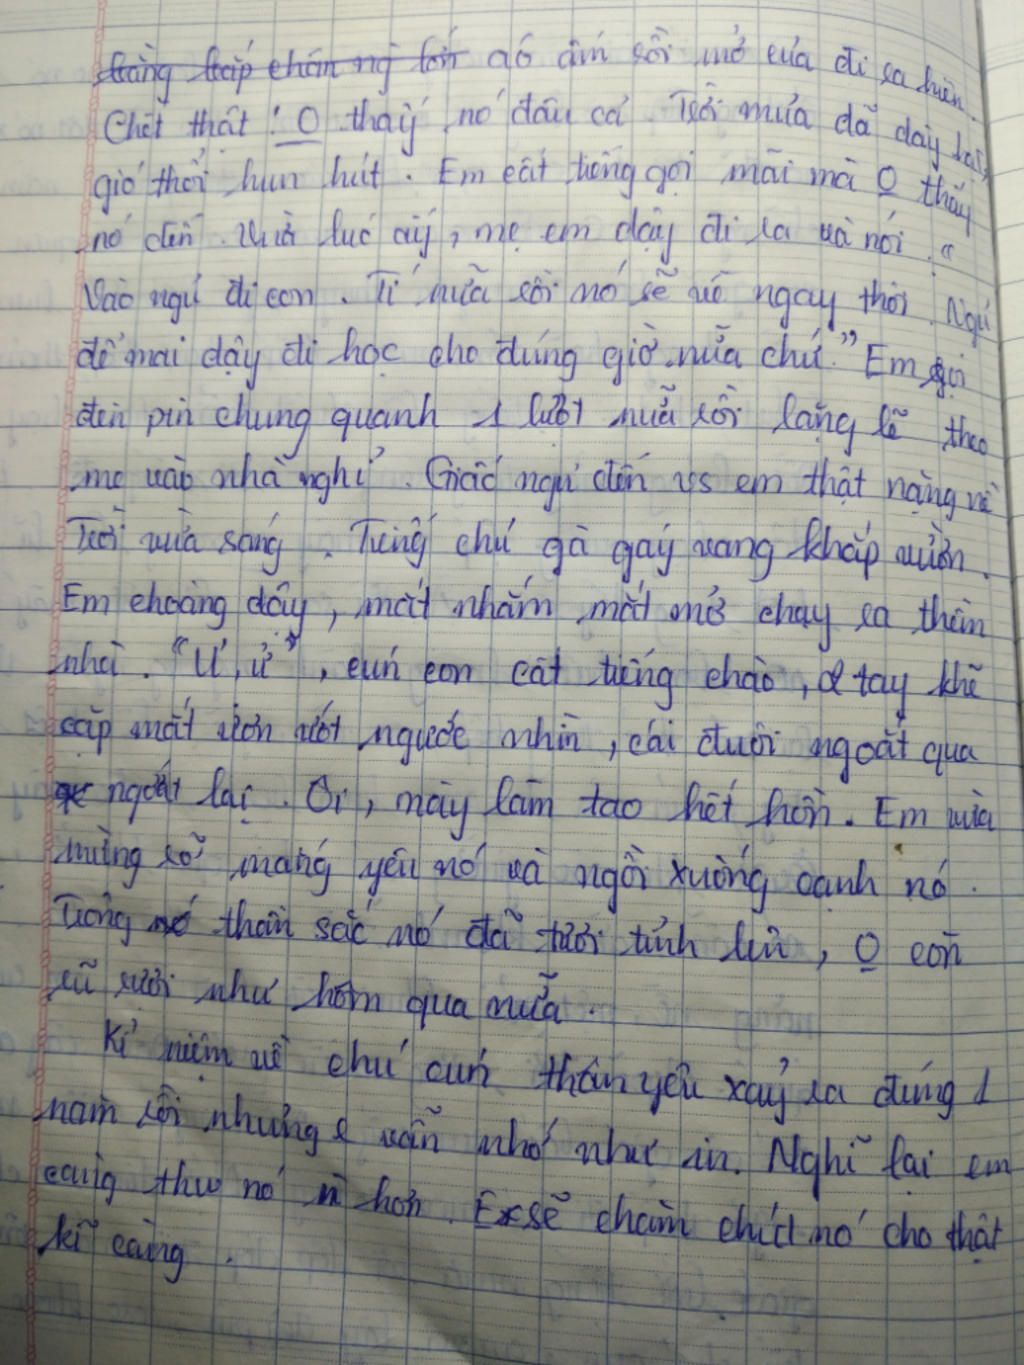 áo ấm rồi mở cửa đi ra hiên.
Chết thật! O thấy nó đâu cả Trời mưa đã dày hạt,
gió thổi hun hút. Em cất tiếng gọi mãi mà O thấy
nó đến. Vừa lúc ấy, mẹ em dậy đi ra và nói. "
Vào ngủ đi con. Tí nữa rồi nó sẽ về ngay thôi. Ngủ
để mai dậy đi học cho đúng giờ nữa chứ." Em gọi
đèn pin chung quanh 1 lượt nữa rồi lặng lẽ theo
mẹ vào nhà nghỉ. Giấc ngủ đến vs em thật nặng nề
Trời vừa sáng. Tiếng chú gà gáy vang khắp vườn.
Em choàng dậy, mắt nhắm mắt mở chạy ra thềm
nhà. "Ư, ử", cún con cất tiếng chào, 2 tay khẽ
cặp mắt ươn ướt ngước nhìn, cái đuôi ngoắt qua
ngoắt lại. Ôi, mày làm tao hết hồn. Em vừa
mừng rỡ mắng yêu nó và ngồi xuống cạnh nó.
Trông thần sắc nó đã tươi tỉnh lên, O còn
rũ rượi như hôm qua nữa.
Kỉ niệm về chú cún thân yêu xảy ra đúng 1
năm rồi nhưng e vẫn nhớ như in. Nghĩ lại em
càng thw nó hơn. Ex sẽ chăm chút nó cho thật
kĩ càng.